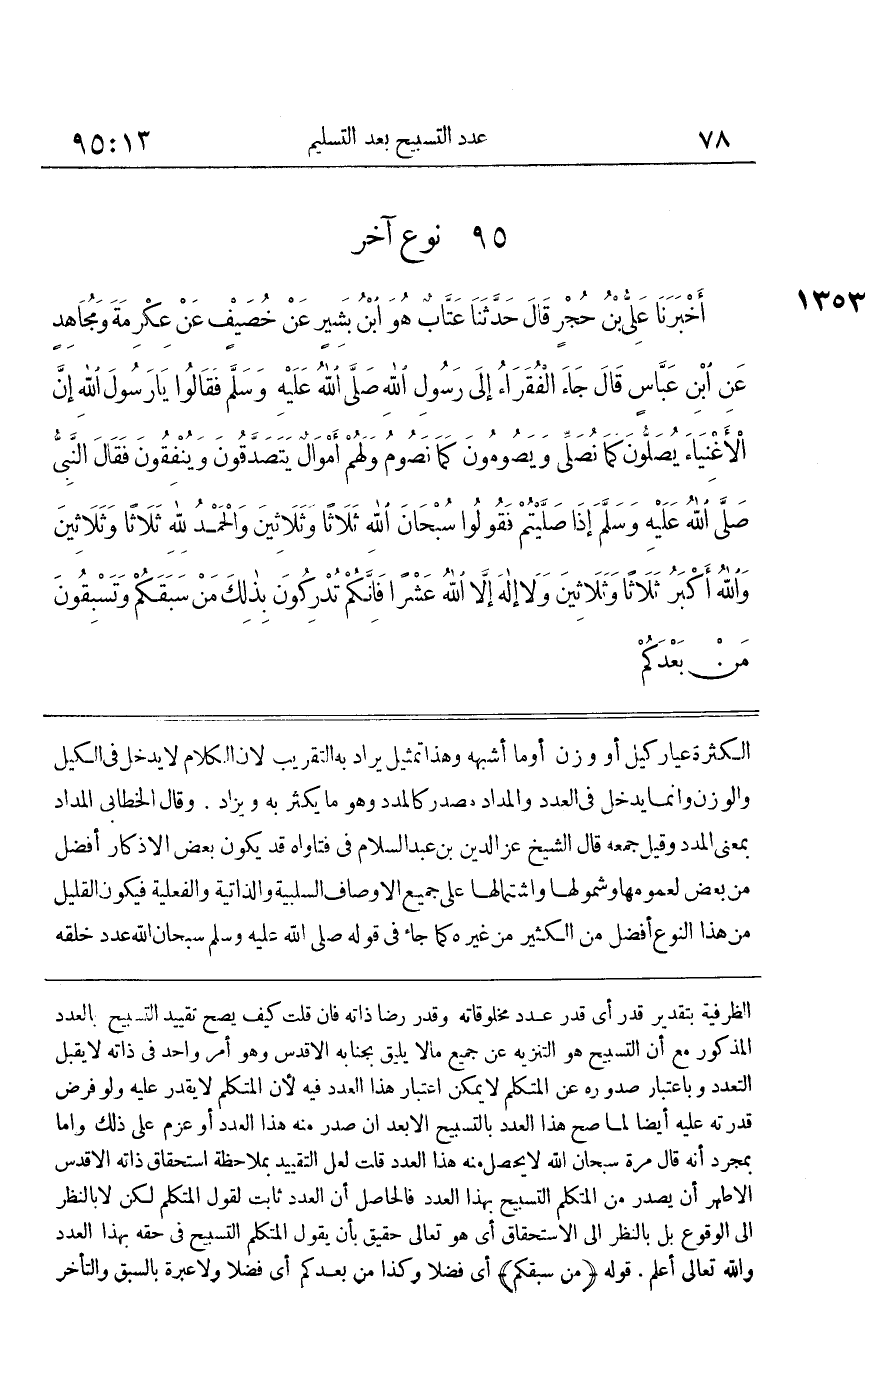 ٧٨ عدد التسبيح بعد التسليم ٩٥:١٣
٩٥ نوع آخر
١٣٥٣ أَخْبَرَنَا عَلِيُّ بْنُ حُجْرٍ قَالَ حَدَّثَنَا عَتَّابٌ هُوَ ابْنُ بَشِيرٍ عَنْ خُصَيْفٍ عَنْ عِكْرِمَةَ وَمُجَاهِدٍ
عَنِ ابْنِ عَبَّاسٍ قَالَ جَاءَ الْفُقَرَاءُ إِلَى رَسُولِ اللهِ صَلَّى اللهُ عَلَيْهِ وَسَلَّمَ فَقَالُوا يَارَسُولَ اللهِ إِنَّ
الْأَغْنِيَاءَ يُصَلُّونَ كَمَا نُصَلِّي وَيَصُومُونَ كَمَا نَصُومُ وَلَهُمْ أَمْوَالٌ يَتَصَدَّقُونَ وَيُنْفِقُونَ فَقَالَ النَّبِيُّ
صَلَّى اللهُ عَلَيْهِ وَسَلَّمَ إِذَا صَلَّيْتُمْ فَقُولُوا سُبْحَانَ اللهِ ثَلَاثًا وَثَلَاثِينَ وَالْحَمْدُ لِلهِ ثَلَاثًا وَثَلَاثِينَ
وَاللهُ أَكْبَرُ ثَلَاثًا وَثَلَاثِينَ وَلَا إِلٰهَ إِلَّا اللهُ عَشْرًا فَإِنَّكُمْ تُدْرِكُونَ بِذٰلِكَ مَنْ سَبَقَكُمْ وَتَسْبِقُونَ
مَنْ بَعْدَكُمْ
الكثرة عيار كيل أو وزن أوما أشبهه وهذا تمثيل يراد به التقريب لان الكلام لايدخل فى الكيل
والوزن وانما يدخل فى العدد والمداد مصدر كالمدد وهو ما يكثر به ويزاد . وقال الخطابى المداد
بمعنى المدد وقيل جمعه قال الشيخ عز الدين بن عبد السلام فى فتاواه قد يكون بعض الاذكار أفضل
من بعض لعمومها وشمولها واشتمالها على جميع الاوصاف السلبية والذاتية والفعلية فيكون القليل
من هذا النوع أفضل من الكثير من غيره كما جاء فى قوله صلى الله عليه وسلم سبحان الله عدد خلقه
الظرفية بتقدير قدر أى قدر عدد مخلوقاته وقدر رضا ذاته فان قلت كيف يصح تقييد التسبيح بالعدد
المذكور مع أن التسبيح هو التنزيه عن جميع مالا يليق بجنابه الاقدس وهو أمر واحد فى ذاته لايقبل
التعدد وباعتبار صدوره عن المتكلم لايمكن اعتبار هذا العدد فيه لأن المتكلم لايقدر عليه ولو فرض
قدرته عليه أيضا لما صح هذا العدد بالتسبيح الابعد ان صدر منه هذا العدد أو عزم على ذلك واما
بمجرد أنه قال مرة سبحان الله لايحصل منه هذا العدد قلت لعل التقييد بملاحظة استحقاق ذاته الاقدس
الاطهر أن يصدر من المتكلم التسبيح بهذا العدد فالحاصل أن العدد ثابت لقول المتكلم لكن لابالنظر
الى الوقوع بل بالنظر الى الاستحقاق أى هو تعالى حقيق بأن يقول المتكلم التسبيح فى حقه بهذا العدد
والله تعالى أعلم . قوله ﴿من سبقكم﴾ أى فضلا وكذا من بعدكم أى فضلا ولاعبرة بالسبق والتأخر